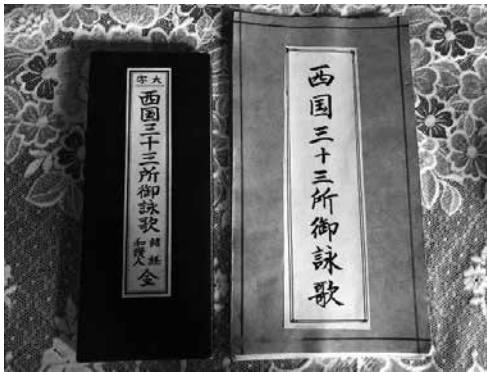 大字
西国三十三所御詠歌
諸経
和讃入
全
西国三十三所御詠歌